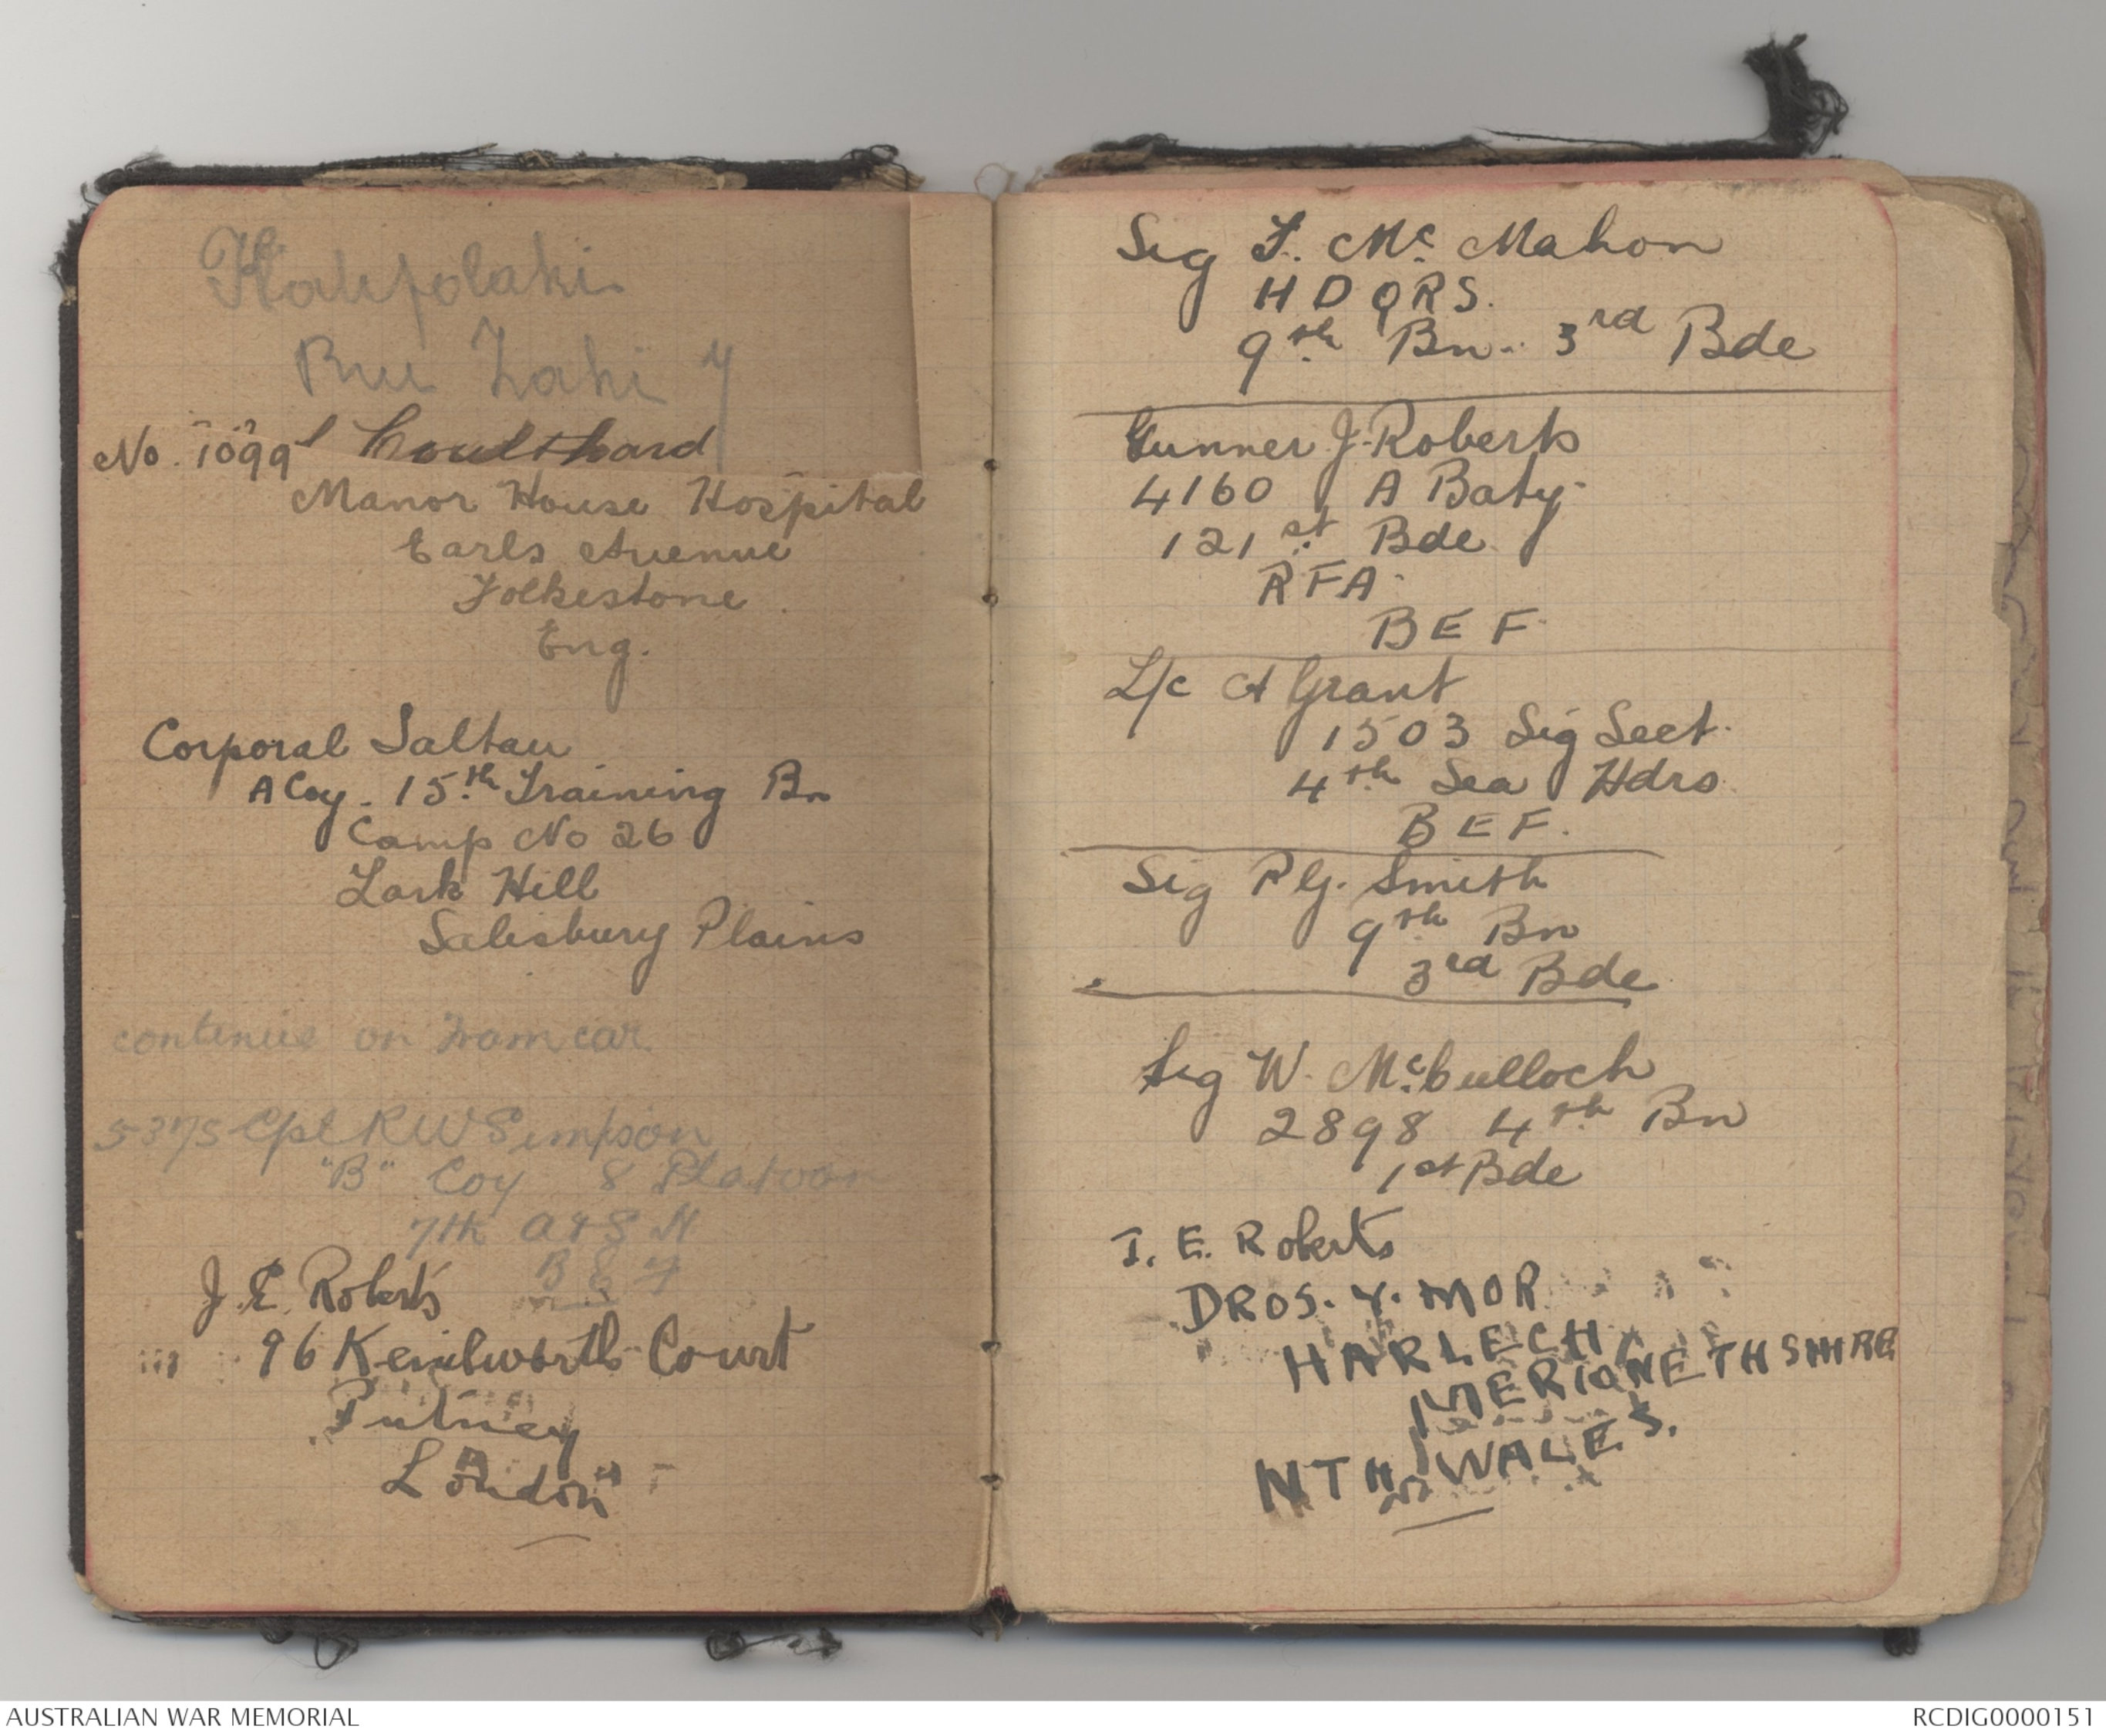 Rue Zaki 4
No. 1099 Coulthard
Manor House Hospital
Earls Avenue
Folkestone
Eng.
Corporal Saltau
A Coy. 15th Training Bn
Camp No 26
Lark Hill
Salisbury Plains
continue on tram car
5375 Cpl R W Simpson
"B" Coy 8 Platoon
7th A & S H
B E F
J. E. Roberts
96 Kenilworth Court
Putney
London
Sig F. Mc Mahon
H D Q R S.
9th Bn. 3rd Bde
Gunner J. Roberts
4160 A Baty.
121st Bde
R F A.
B E F.
L/c A Grant
1503 Sig Sect.
4th Sea Hdrs
B E F.
Sig P G. Smith
9th Bn
3rd Bde
Sig W. McCulloch
2898 4th Bn
1st Bde
J. E. Roberts
DROS. Y. MOR
HARLECH,
MERIONETHSHIRE
NTH WALES.
AUSTRALIAN WAR MEMORIAL
RCDIG0000151